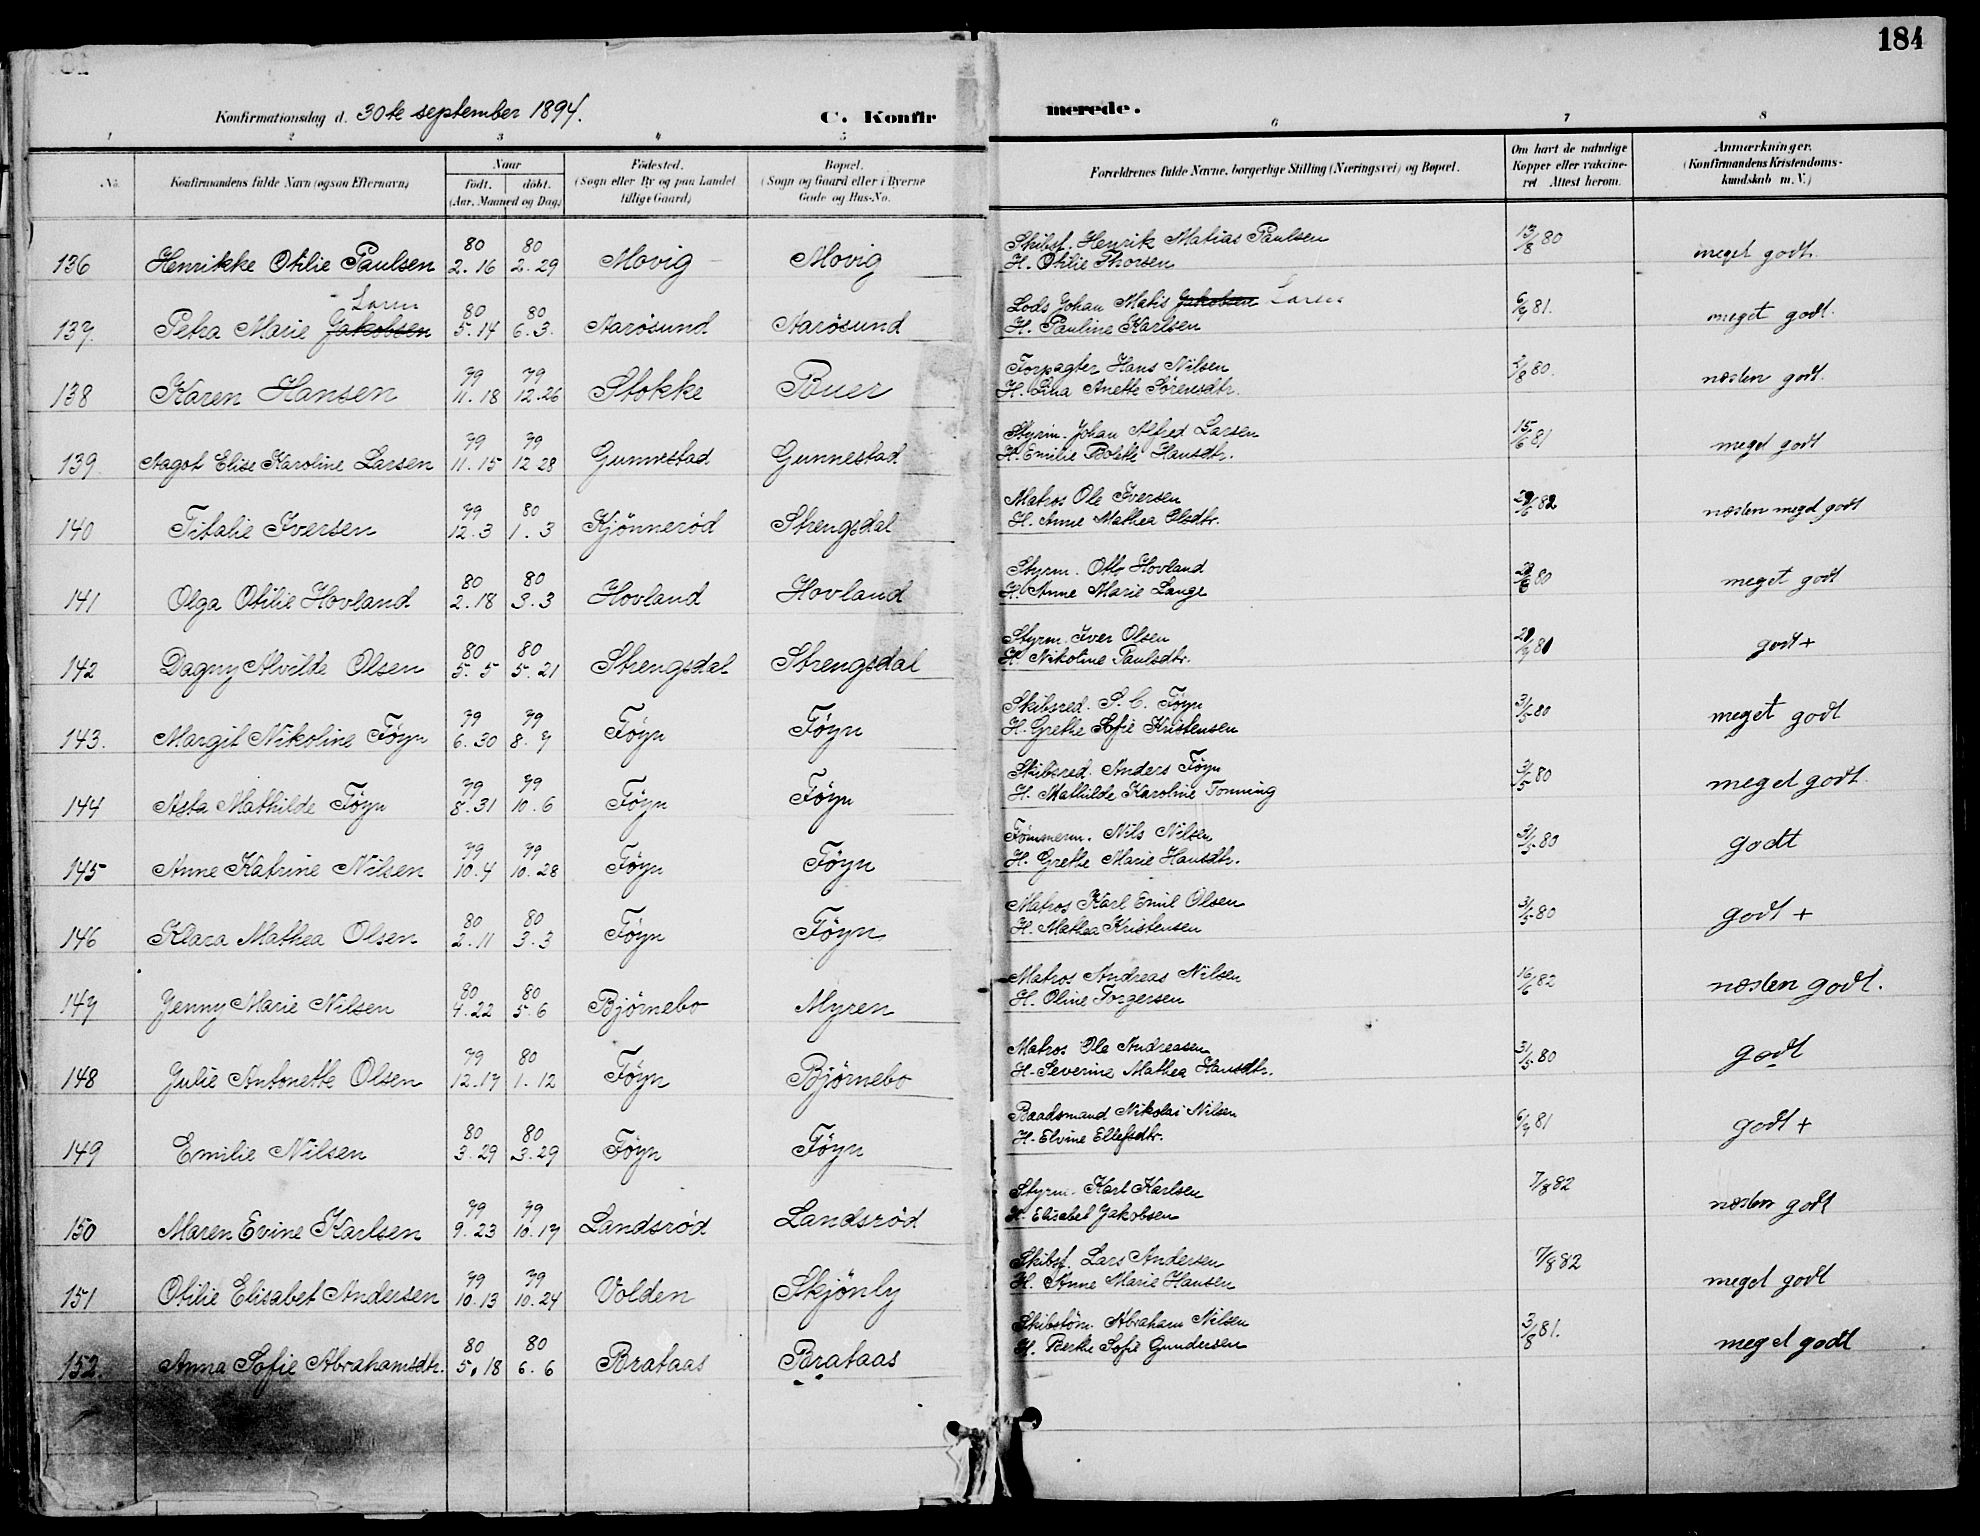 184
Konfirmationsdag d. 30te september 1894. C. Konfirmerede.
1 2 3 4 5 6 7 8
No. Konfirmandens fulde Navn (ogsaa Efternavn) Naar født. døbt. (Aar, Maaned og Dag) Fødested. (Sogn eller By og paa Landet tillige Gaard) Bopæl. (Sogn og Gaard eller i Byerne Gade og Hus-No. Forældrenes fulde Navne, borgerlige Stilling (Næringsvei) og Bopæl. Om havt de naturlige Kopper eller vakcineret Attest herom. Anmærkninger. (Konfirmandens Kristendomskundskab m. V.)
136 Henrikke Otilie Paulsen 80 2. 16 80 2. 29 Movig Movig Skibsf. Henrik Matias Paulsen H. Otilie Thorsen 13/8 80 meget godt.
137. Petra Marie Jakobsen Larsen 80 5. 14 80 6. 3. Aarösund Aarösund Lods Johan Matis Jakobsen Larsen H. Pauline Karlsen 6/7 81. meget godt.
138 Karen Hansen 79 11. 18 79 12. 26 Stokke Buer Forpagter Hans Nilsen H. Lina Anette Sörensdtr. 2/8 80. næsten godt.
139. Aagot Elise Karoline Larsen 79 11. 15 79 12 28 Gunnestad Gunnestad Styrm. Johan Alfred Larsen H. Emilie Bolette Hansdtr. 15/6 81 meget godt
140 Titalie Iversen 79 12. 3 80 1. 3 Kjönneröd Strengsdal Matros Ole Iversen H. Anne Mathea Olsdtr. 29/6 82 næsten meget godt
141 Olga Otilie Hovland 80 2. 18 80 3. 3 Hovland Hovland Styrm. Otto Hovland H. Anne Marie Lange /6 80 meget godt
142 Dagny Alvilde Olsen 80 5. 5 80 5. 21 Strengsdal Strengsdal Styrm. Iver Olsen H. Nikoline Paulsdtr. 29/7 81 godt +
143. Margit Nikoline Föyn 79 6. 30 79 8. 7 Föyn Föyn Skibsred. S. C. Föyn H. Grethe Sofie Kristensen 31/5 80 meget godt
144 Asta Mathilde Föyn 79 8. 31 79 10. 6 Föyn Föyn Skibsred. Anders Föyn H. Mathilde Karoline Tonning 31/5 80 meget godt.
145 Anne Katrine Nilsen 79 10. 4 79 10. 28 Föyn Föyn Tömmerm. Nils Nilsen H. Grethe Marie Hansdtr. 31/5 80 godt
146 Klara Mathea Olsen 80 2. 11 80 3. 3 Föyn Föyn Matros Karl Emil Olsen H. Mathea Kristensen 31/5 80 godt +
147 Jenny Marie Nilsen 80 4. 22 80 5. 6 Björnebo Myren Matros Andreas Nilsen H. Oline Torgersen 16/6 82 næsten godt.
148 Julie Antonette Olsen 79 12. 17 80 1. 12 Föyn Björnebo Matros Ole Andreasen H. Severine Mathea Hansdtr. 31/5 80 godt
149 Emilie Nilsen 80 3. 29 80 3. 29 Föyn Föyn Baadsmand Nikolai Nilsen H. Elvine Ellefsdtr. 6/7 81 godt +
150 Maren Evine Karlsen 79 9. 23 79 10. 17 Landsröd Landsröd Styrm. Karl Karlsen H. Elisabet Jakobsen 7/8 82 næsten godt
151 Otilie Elisabet Andersen 79 10. 13 79 10. 24 Volden Skjönby Skibsf. Lars Andersen H. Anne Marie Hansen 7/8 82 meget godt
152. Anna Sofie Abrahamsdtr. 80 5. 18 80 6. 6 Brataas Brataas Skibstöm. Abraham Nilsen H. Berthe Sofie Gundersen 3/8 81. meget godt